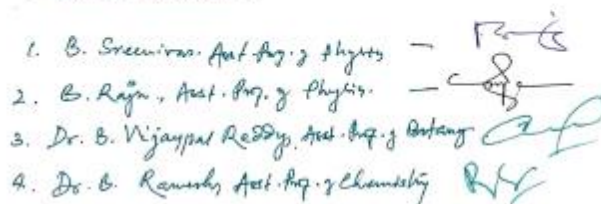 1. B. Sreenivas. Asst. Prof. of Physics —
2. B. Raju, Asst. Prof. of Physics. —
3. Dr. B. Vijaypal Reddy, Asst. Prof. of Botany
4. Dr. B. Ramesh, Asst. Prof. of Chemistry